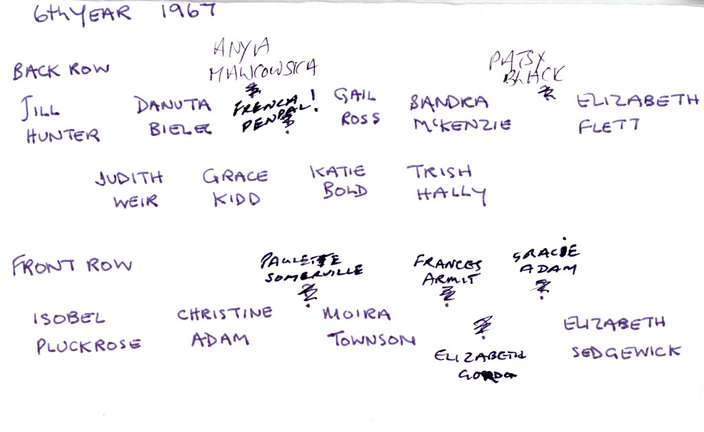 6th YEAR 1967
ANYIA
MAWROWSKA
PATSY
BLACK
BACK ROW
JILL
HUNTER
DANUTA
BIELEC
FRENCH!
PENPAL?
GAIL
ROSS
SANDRA
McKENZIE
ELIZABETH
FLETT
JUDITH
WEIR
GRACE
KIDD
KATIE
BOLD
TRISH
HALLY
FRONT ROW
PAULETTE
SOMERVILLE
FRANCES
ARMIT
GRACIE
ADAM
ISOBEL
PLUCKROSE
CHRISTINE
ADAM
MOIRA
TOWNSON
ELIZABETH
GORDON
ELIZABETH
SEDGEWICK